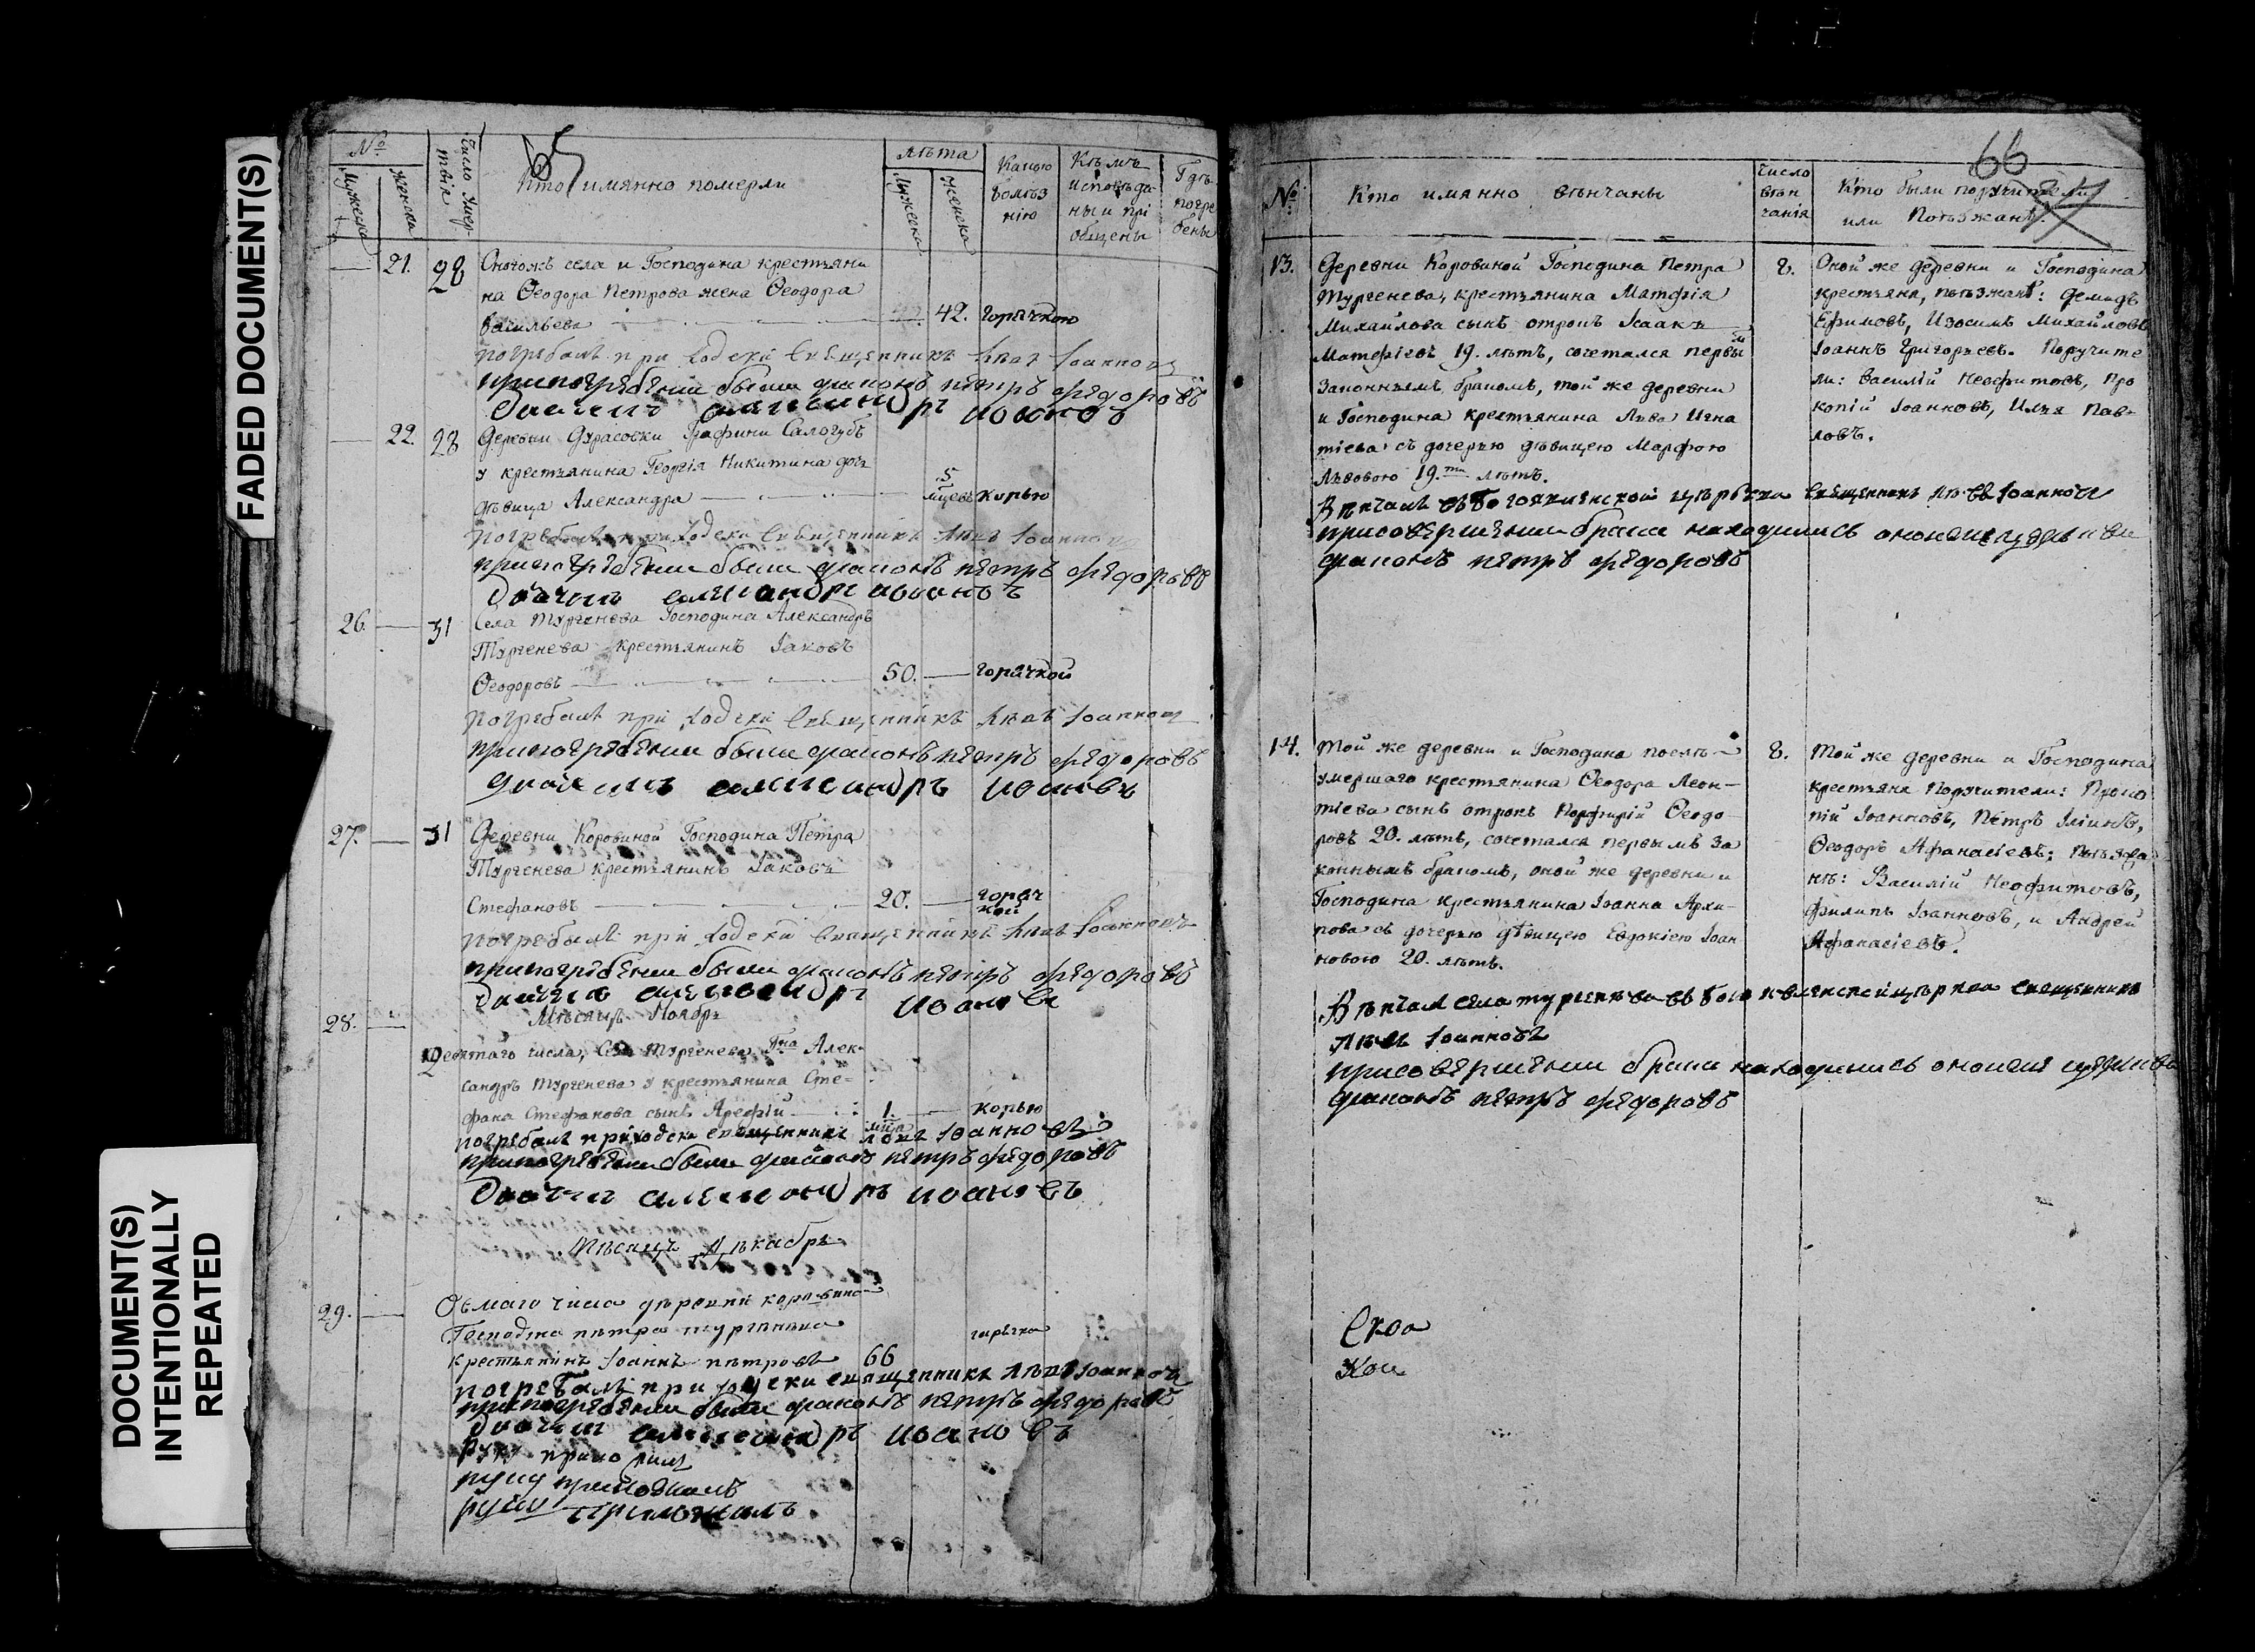 FADED DOCUMENT(S)
DOCUMENT(S)
INTENTIONALLY
REPEATED
65
№
Мужеска
Женска
Число Умер-
твія
Кто имянно померли
лѣта
Мужеска
Женска
Какою
болѣз
нію
Кѣмъ
исповѣда
ны и прі
общены
Гдѣ
погре
бены
21. 28
Оногожъ села и Господина крестьяни
на Ѳеодора Петрова жена Ѳеодора
Васильева 42. горячкою
погребалъ приходскій священникъ Левъ Іоанновъ
при погребеніи были диаконъ петръ федоровъ
дьячикъ александръ ивановъ
22. 28 Деревни Дурасовки Графини Салогубъ
у крестьянина Георгія Никитина дочь
дѣвица Александра 5 мцевъ корью
погребалъ приходски священникъ Левъ Іоанновъ
при погребении были диаконъ петръ федоровъ
дьячикъ александръ ивановъ
26. 31 Села Тургенева Господина Александръ
Тургенева крестьянинъ Іаковъ
Ѳеодоровъ 50. горячкой
погребалъ при ходски священникъ Левъ Іоанновъ
при погребении были диаконъ петръ федоровъ
дьячикъ александръ ивановъ
27. 31 Деревни Коровиной Господина Петра
Тургенева крестьянинъ Іаковъ
Стефановъ 20. горяч
кой
погребалъ при ходски священникъ Левъ Іоанновъ
при погребении были диаконъ петръ федоровъ
дьячикъ александръ ивановъ
Мѣсяцъ Ноябрь
28. Девятаго числа, Села Тургенева Гна Алек-
сандръ Тургенева у крестьянина Сте=
фана Стефанова сынъ Арефій 1. мца корью
погребалъ приходски священникъ Левъ Іоанновъ
при погребении были диаконъ петръ федоровъ
дьячикъ александръ ивановъ
Мѣсяцъ Декабрь
29. Осьмаго числа деревни коровино
Господна петра тургенева горячка
крестьянинъ Іоаннъ петровъ 66
погребалъ при ходски священникъ Левъ Іоанновъ
при погребении были диаконъ петръ федоровъ
дьячикъ александръ ивановъ
руку приложилъ
руку приложилъ
руку приложилъ
66
№
Кто имянно вѣнчаны
Число
вѣн
чанія
Кто были поручители
или Поѣзжанѣ.
13. Деревни Коровиной Господина Петра
Тургенева, крестьянина Матфія
Михайлова сынъ отрокъ Исаакъ
Матфіевъ 19. лѣтъ, сочетался первым
Законнымъ бракомъ, той же деревни
и Господина крестьянина Льва Игна
тіева съ дочерью дѣвицею Марфою
Львовою 19.ти лѣтъ.
8. Оной же деревни и Господина
крестьяна, поѣзжанѣ: Демидъ
Ефимовъ, Изосимъ Михайловъ
Іоаннъ Григорьевъ. Поручите
ли: Василій Неофитовъ, Про
копій Іоанновъ, Илья Пав-
ловъ.
Вѣнчалъ въ Богоявленской церькви священникъ Левъ Іоанновъ
при совершении брака находились оной же церкви
диаконъ петръ федоровъ
14. Той же деревни и Господина послѣ
умершаго крестьянина Ѳеодора Леон-
тіева сынъ отрокъ Порфирій Ѳеодо
ровъ 20. лѣтъ, сочетался первымъ За
коннымъ бракомъ, оной же деревни и
Господина крестьянина Іоанна Архи-
пова съ дочерью дѣвицею Евдокіею Іоан
новою 20. лѣтъ.
8. Той же деревни и Господина
крестьяна Поручители: Проко
пій Іоанновъ, Петръ Іліинъ,
Ѳеодоръ Афанасіевъ; Поѣзжа
нѣ: Василій Неофитовъ,
Филипъ Іоанновъ, и Андрей
Афанасіевъ.
Вѣнчалъ села тургенева въ богоявленской церкви священникъ
Левъ Іоанновъ
при совершении брака находились оной же церкви
диаконъ петръ федоровъ